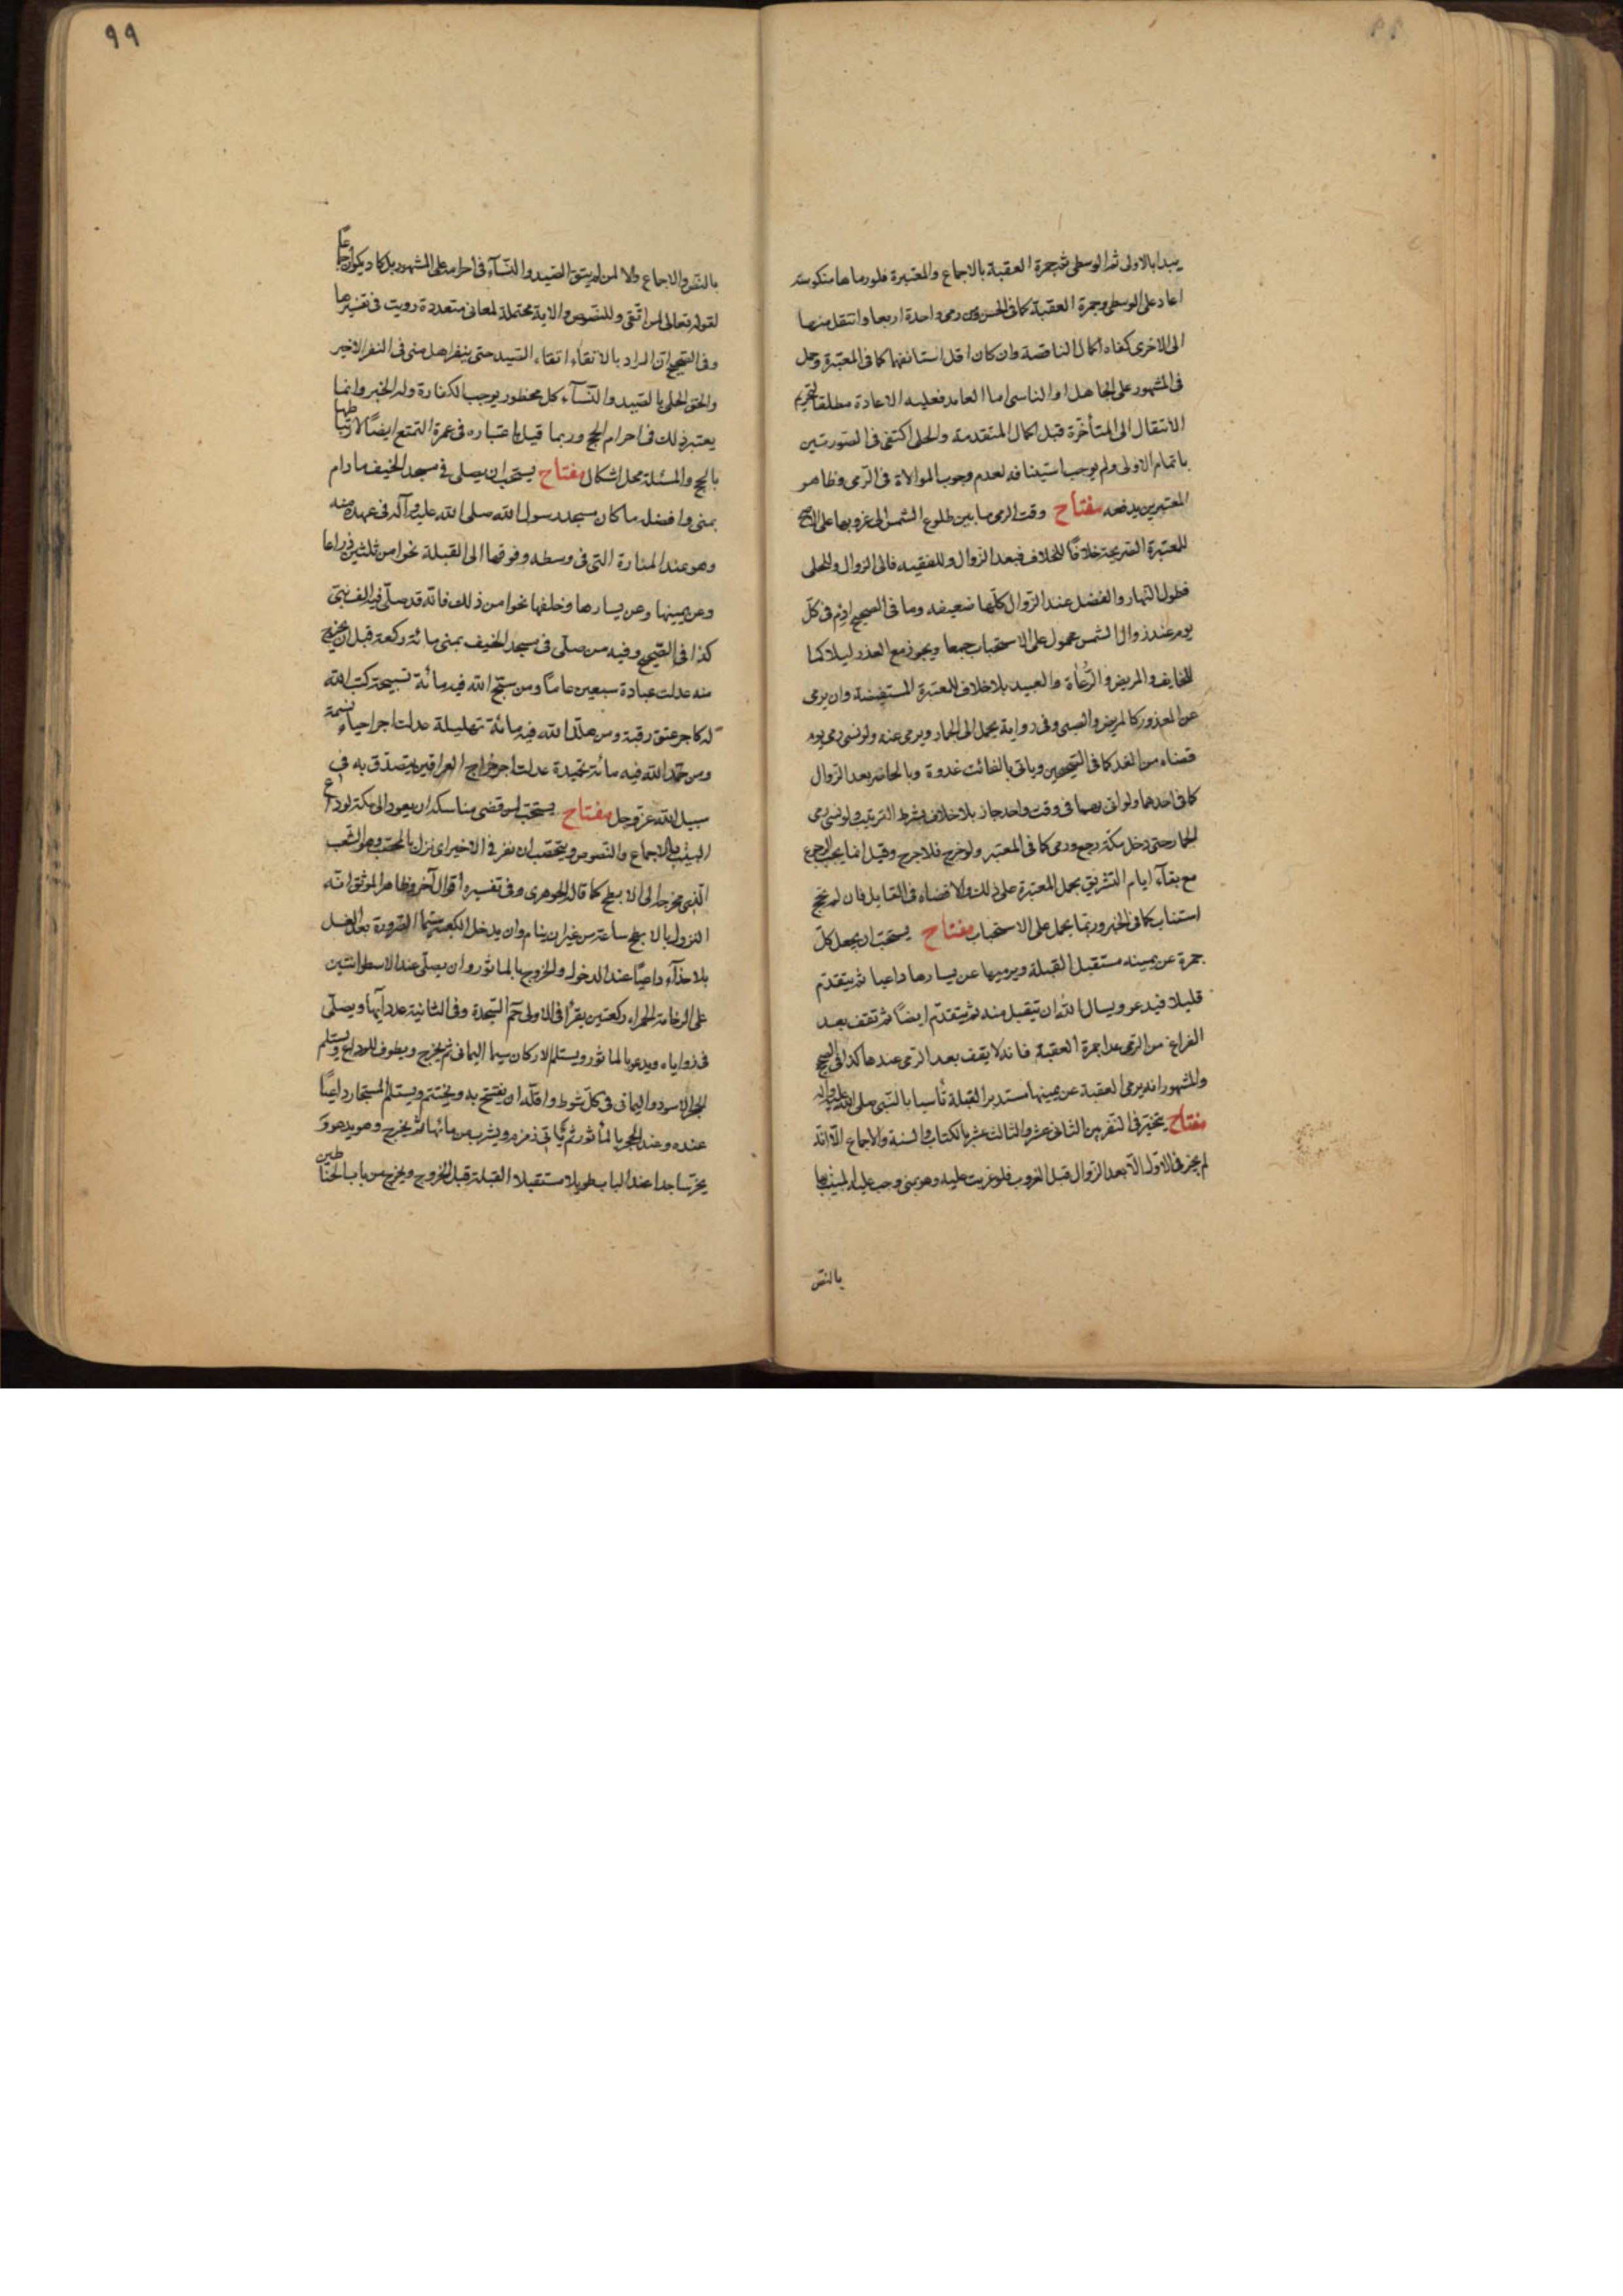 يبدا بالاولى ثم الوسطى ثم جمرة العقبة بالاجماع والمعتبرة فلو رماها منكوسة
اعاد على الوسطى وجمرة العقبة كما فى الحسن ومن رمى واحدة اربعا وانتقل منها
الى الاخرى كفاه اكمال الناقصة وان كان اقل استانفها كما فى المعتبرة وحمل
فى المشهور على الجاهل او الناسى اما العامد فعليه الاعادة مطلقا لتحريم
الانتقال الى المتأخرة قبل اكمال المتقدمة والحلى اكتفى فى الصورتين
باتمام الاولى ولم يوجب استينافه لعدم وجوب الموالاة فى الرمى وظاهر
المعتبرين يدفعه مفتاح وقت الرمى ما بين طلوع الشمس الى غروبها على الاصح
للمعتبرة الصريحة خلافًا للخلاف فبعد الزوال وللفقيه فالى الزوال وللحلى
فطول النهار والفضل عند الزوال كلّها ضعيفه وما فى الصحيح ارم فى كلّ
يوم عند زوال الشمس محمول على الاستحباب جمعا ويجوز مع العذر ليلا كما
للخايف والمريض والرُّعاة والعبيد بلا خلاف للمعتبرة المستفيضة وان يرمى
عن المعذور كالمريض والصبى وفى رواية يحمل الى الجمار ويرمى عنه ولو نسى رمى يوم
قضاه من الغد كما فى الصحيحين وياتى بالفائت غدوة وبالحاضر بعد الزوال
كما فى احدهما ولو اتى بهما فى وقت واحد جاز بلا خلاف بشرط الترتيب ولو نسى رمى
الجمار حتى دخل مكة رجع ورمى كما فى المعتبر ولو خرج فلا حرج وقيل انما يجب الرجوع
مع بقآء ايام التشريق بحمل المعتبرة على ذلك والا قضاه فى القابل فان لم يحج
استناب كما فى الخبر وربما يحمل على الاستحباب مفتاح يستحب ان يجعل كلّ
جمرة عن يمينه مستقبل القبلة ويرميها عن يسارها داعيا ثم يتقدم
قليلا فيدعو ويسال الله ان يتقبل منه ثم يتقدّم ايضًا ثم تقف بعد
الفراغ من الرمى عدا جمرة العقبة فانه لا يقف بعد الرمى عندها كذا فى الصحيح
والمشهور انه يرمى العقبة عن يمينها مستدبر القبلة تأسيا بالنبى صلى الله عليه وآله
مفتاح يتخير فى النفر بين الثانى عشر والثالث عشر بالكتاب والسنة والاجماع الّا انّه
لم يجز فى الاوّل الّا بعد الزوال قبل الغروب فلو غربت عليه وهو بمنى وجب عليه المبيت بها
بالنص
٩٩
بالنص والاجماع ولا لمن لم يتق الصيد والنسآء فى احرامه على المشهور بل كاد يكون اجماعًا
لقوله تعالى لمن اتّقى وللنصوص والاية محتملة لمعانى متعددة رويت فى تفسيرها
وفى الصحيح ان المراد بالاتقاء اتقاء الصيد حتى ينفر اهل منى فى النفر الاخير
والحق الحلى بالصيد والنسآء كل محظور يوجب الكفارة وله الخبر وانما
يعتبر ذلك فى احرام الحج وربما قيل باعتباره فى عمرة التمتع ايضًا لارتباطها
بالحج والمسئلة محل اشكال مفتاح يستحب ان يصلى فى مسجد الخيف ما دام
بمنى وافضله ما كان مسجد رسول الله صلى الله عليه وآله فى عهده منه
وهو عند المنارة التى فى وسطه وفوقها الى القبلة نحوا من ثلثين ذراعا
وعن يمينها وعن يسارها وخلفها نحوا من ذلك فانّه قد صلّى فيه الف نبىّ
كذا فى الصّحيح وفيه من صلّى فى مسجد الخيف بمنى مائة ركعة قبل ان يخرج
منه عدلت عبادة سبعين عامًا ومن سبّح الله فيه مأئة تسبيحة كتب الله
له كاجر عتق رقبة ومن هلل الله فيه مائة تهليلة عدلت اجر احياء نسمة
ومن حمد الله فيه مائة تحميدة عدلت اجر خراج العراقين يتصدّق به فى
سبيل الله عزّ وجل مفتاح يستحب لمن قضى مناسكه ان يعود الى مكة لوداع
البيت بالاجماع والنصوص ويتحصّب ان نفر فى الاخير اى نزل بالمحصّب وهو الشعب
الذى مخرجه الى الابطح كما قاله الجوهرى وفى تفسيره أقوال آخر وظاهر الموثق انّه
النزول بالابطح ساعة من غير ان ينام وان يدخل الكعبة سيّما الصرورة بعد الغسل
بلا حذآء داعيًا عند الدخول والخروج بالماثور وان يصلّى عند الاسطوانتين
على الرخامة الحمراء ركعتين يقرأ فى الاولى حمّ السّجدة وفى الثانية عدد آيها ويصلّى
فى زواياه ويدعو بالماثور ويستلم الاركان سيما اليمانى ثم يخرج ويطوف للوداع ويستلم
الحجر الاسود واليمانى فى كلّ شوط واقلّه ان يفتتح به ويختتم ويستلم المستجار داعيًا
عنده وعند الحجر بالمأثور ثم يأتى زمزم ويشرب من مائها ثم يخرج وهو يدعو و
يخرّ ساجدا عند الباب طويلا مستقبلا القبلة قبل الخروج ويخرج من باب الحناطين